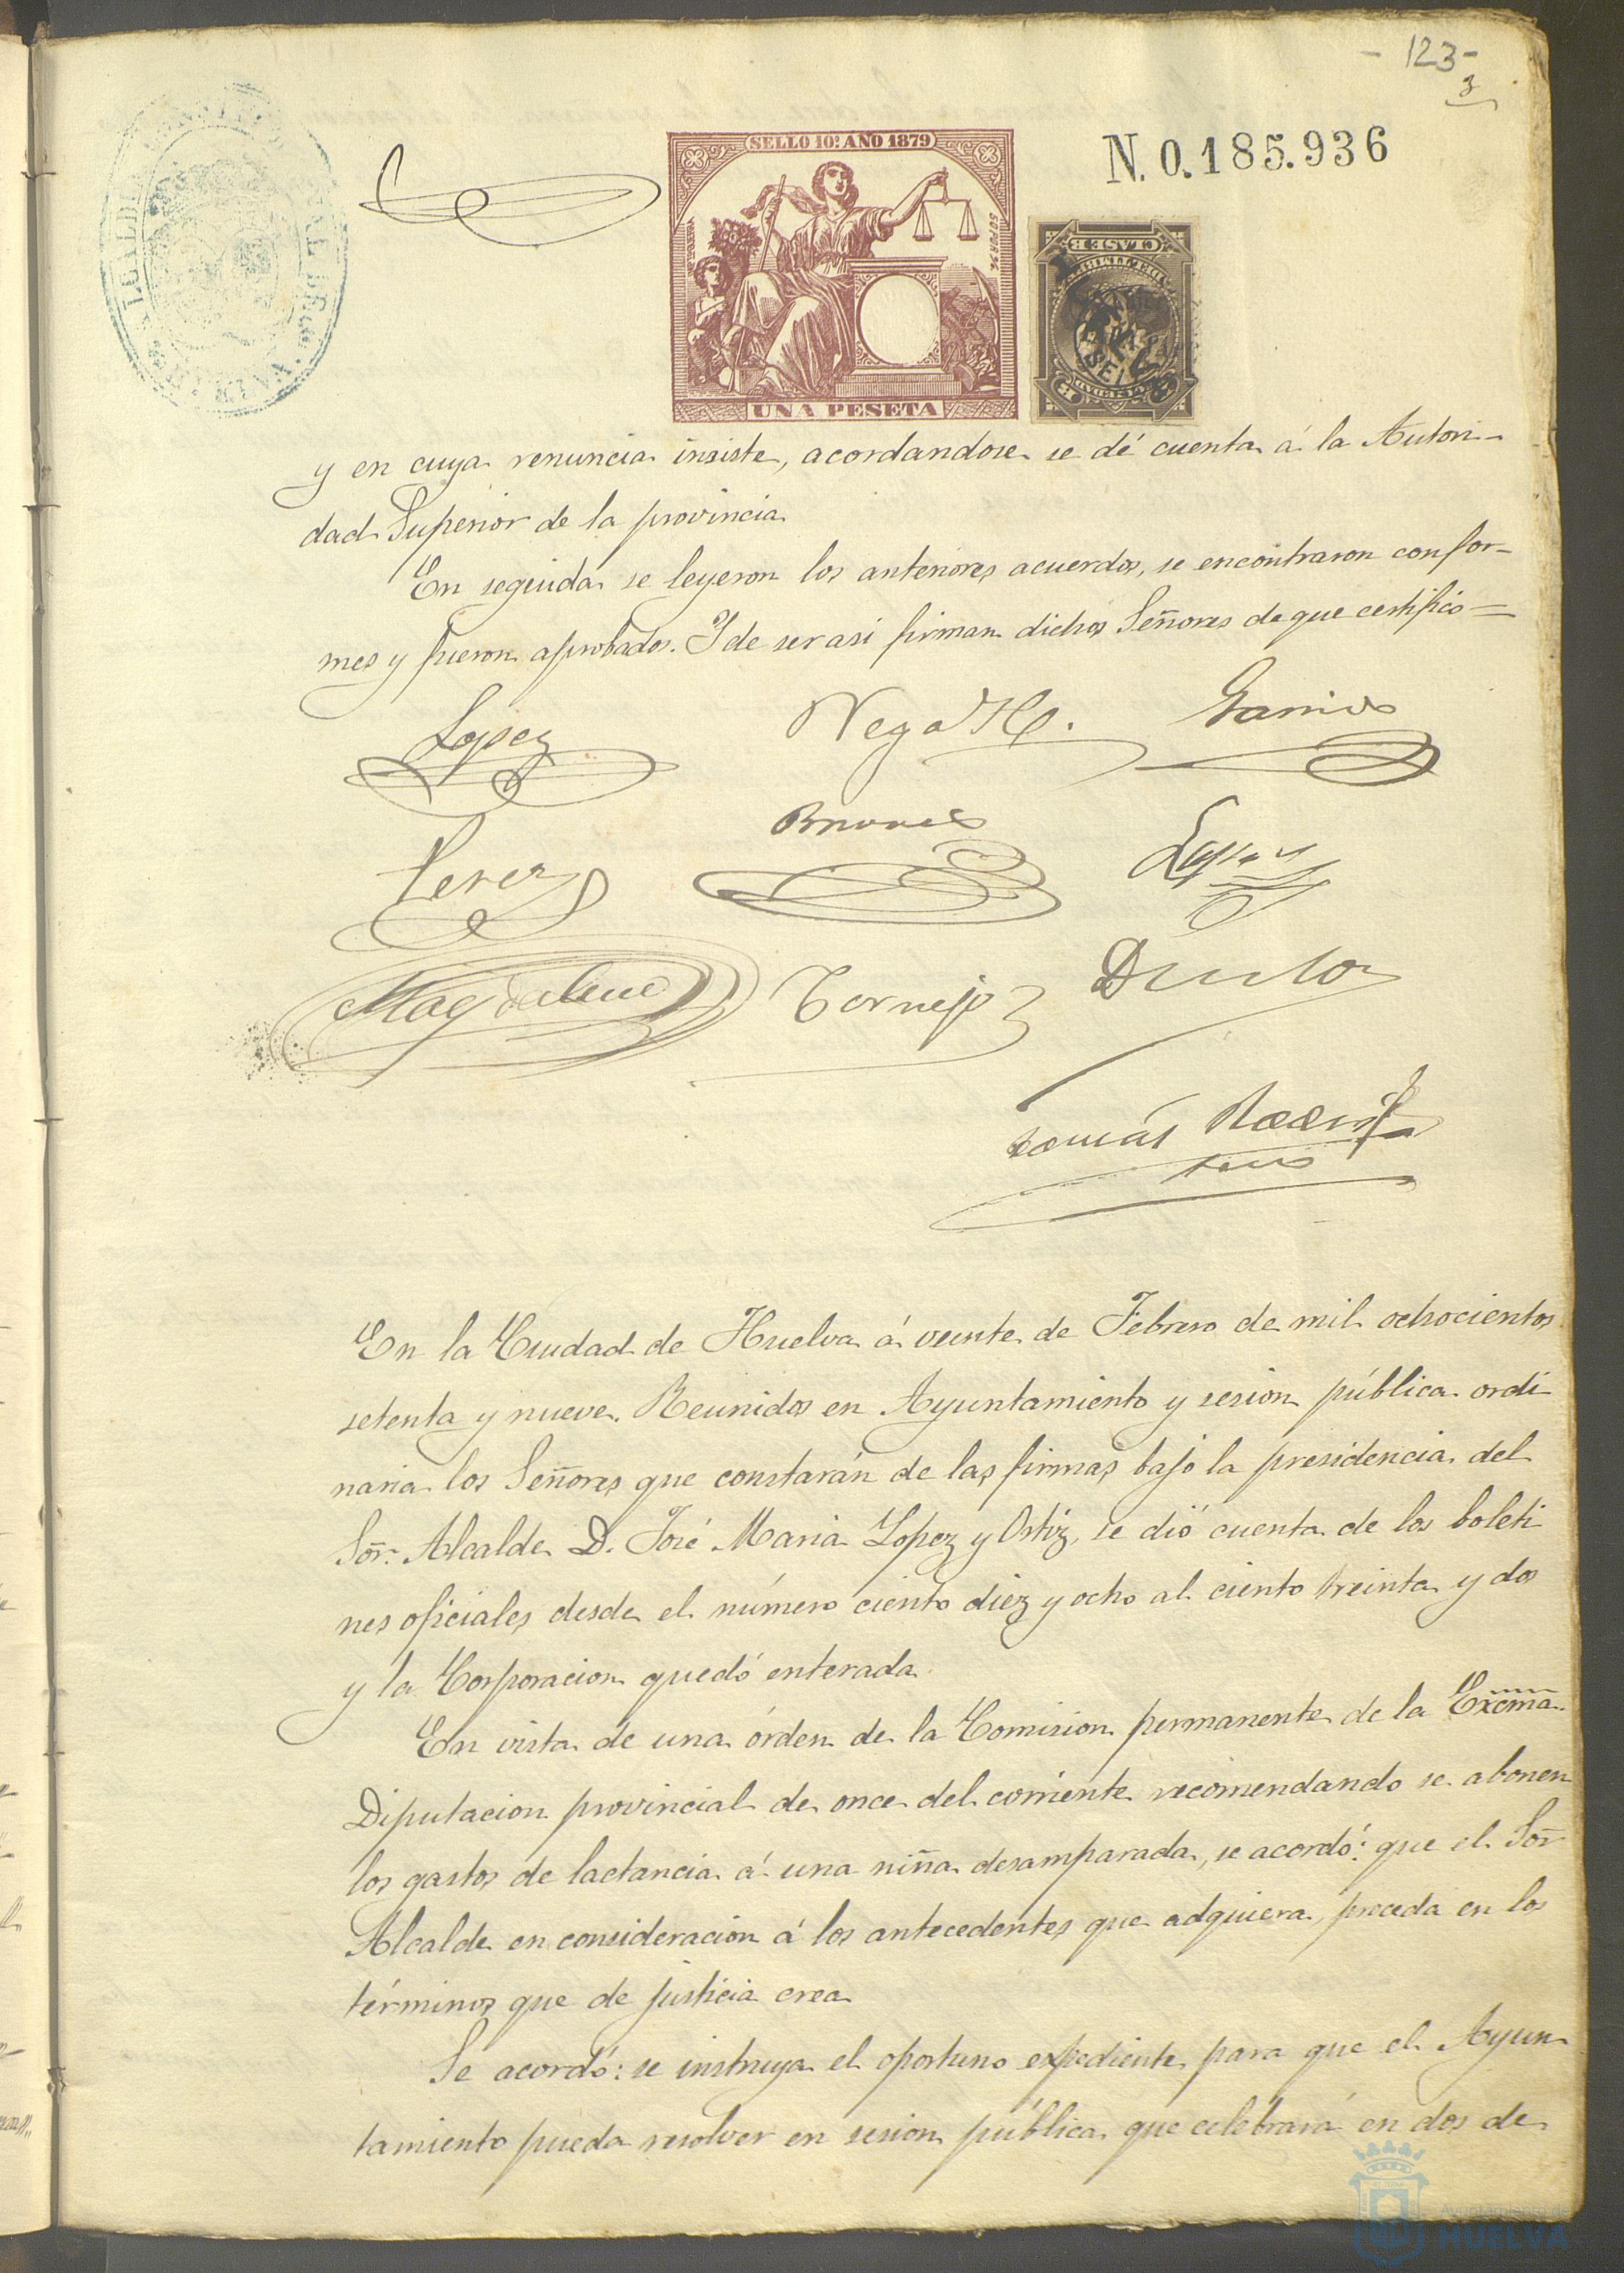 - 123 -
3
SELLO 10º AÑO 1879
N. 0.185.936
CLASE 8ª
UNA PESETA
ALCALDIA CONSTITUCIONAL DE HUELVA
y en cuya renuncia insiste, acordandose se dé cuenta á la Autori-
dad Superior de la provincia
En seguida se leyeron los anteriores acuerdos, se encontraron confor-
mes y fueron aprobados. Y de ser asi firman dichos Señores de que certifico =
Lopez
Vega H.
Garrido
Perez
Lopez
Magdalena
Cornejo
Tomás
En la Ciudad de Huelva á veinte de Febrero de mil ochocientos
setenta y nueve. Reunidos en Ayuntamiento y sesion pública ordi
naria los Señores que constarán de las firmas bajo la presidencia del
Sor. Alcalde D. José Maria Lopez y Ortiz, se dió cuenta de los boleti
nes oficiales desde el número ciento diez y ocho al ciento treinta y dos
y la Corporacion quedó enterada.
En vista de una órden de la Comision permanente de la Excma.
Diputacion provincial de once del corriente recomendando se abonen
los gastos de lactancia á una niña desamparada, se acordó: que el Sor
Alcalde en consideracion á los antecedentes que adquiera, proceda en los
términos que de justicia crea
Se acordó: se instruya el oportuno expediente para que el Ayun
tamiento pueda resolver en sesion pública que celebrará en dos de
Ayuntamiento de
HUELVA